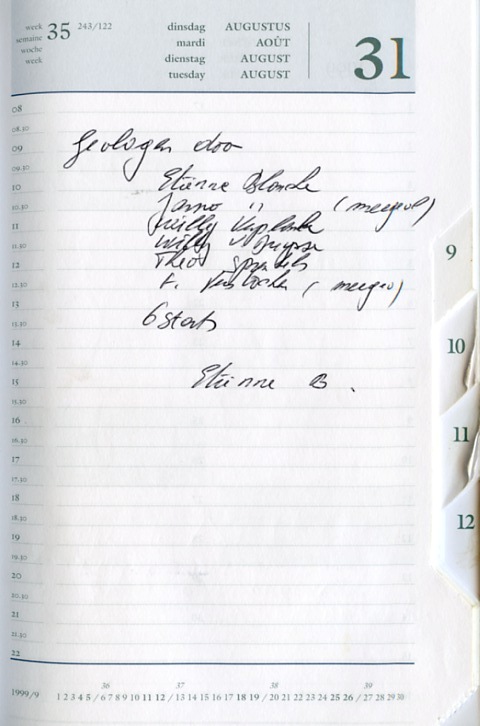 week
semaine
woche
week
35
243/122
dinsdag AUGUSTUS
mardi AOÛT
dienstag AUGUST
tuesday AUGUST
31
08
08.30
09
09.30
10
10.30
11
11.30
12
12.30
13
13.30
14
14.30
15
15.30
16
16.30
17
17.30
18
18.30
19
19.30
20
20.30
21
21.30
22
door
Etienne
"
Willy
Willy
Theo
F.
6 starts
Etienne B.
9
10
11
12
36 37 38 39
1999/9 1 2 3 4 5 / 6 7 8 9 10 11 12 / 13 14 15 16 17 18 19 / 20 21 22 23 24 25 26 / 27 28 29 30